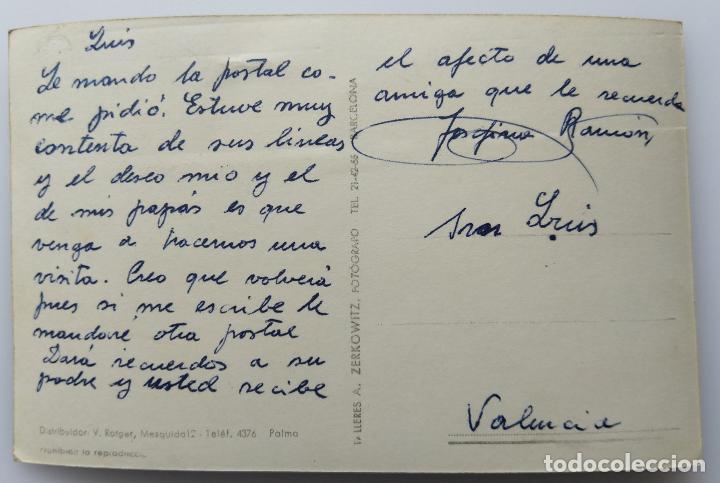 Luis
Le mando la postal co-
me pidió. Estuve muy
contenta de sus líneas
y el deseo mio y el
de mis papás es que
venga a hacernos una
visita. Creo que volverá
pues si me escribe le
mandaré otra postal
Dará recuerdos a su
padre y usted recibe
el afecto de una
amiga que le recuerda
Josefina Ramón
Luis
Valencia
TALLERES A. ZERKOWITZ, FOTÓGRAFO TEL. 21-42-55 BARCELONA
Distribuidor: V. Rotger, Mesquida12 - Teléf. 4376 Palma
Prohibida la reproducc.
todocoleccion.net